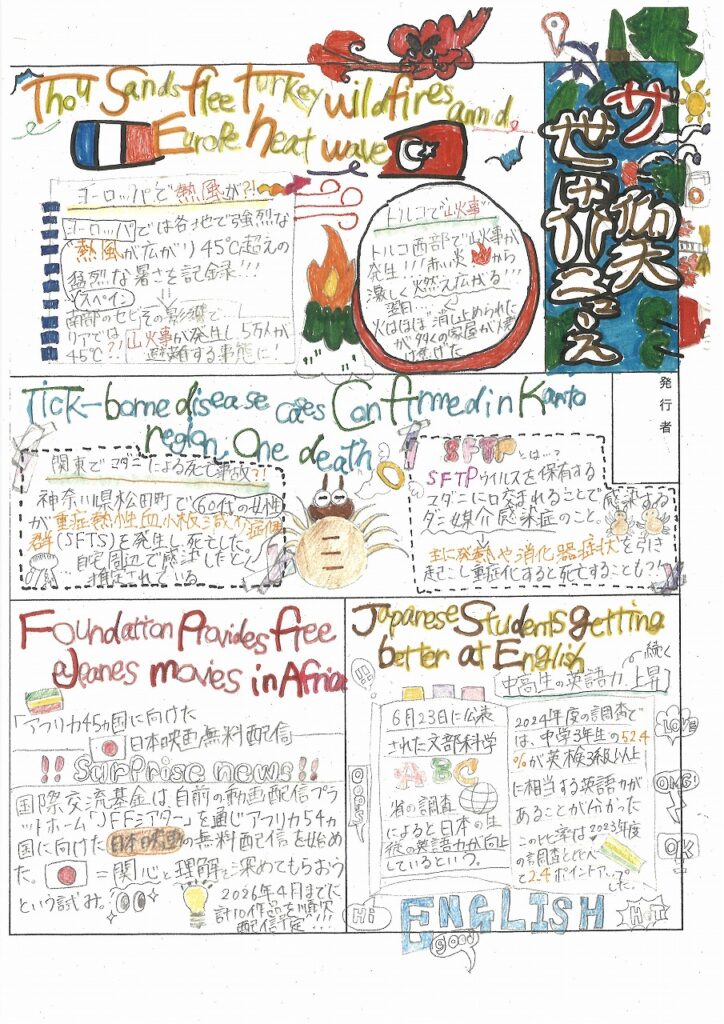 Thousands flee Turkey wildfires amid
Europe heat wave
ヨーロッパで熱風が?!
ヨーロッパでは各地で強烈な
熱風が広がり45℃超えの
猛烈な暑さを記録!!!
スペイン
南部のセビ
リアでは
45℃?!
その影響で
山火事が発生し5万人が
避難する事態に!
トルコで山火事
トルコ西部で山火事が
発生!!!赤い火から
激しく燃え広がる!!!
翌日…
火はほぼ消し止められた
が多くの家屋が焼
け焦げた
ザ
世界
発行者
Tick-borne disease cases Confirmed in Kanto
region, One death
関東でマダニによる死亡事故?!
神奈川県松田町で60代の女性
が重症熱性血小板減少症候
群(SFTS)を発生し死亡した。
自宅周辺で感染したと
推定されている。
SFTPとは…?
SFTPウイルスを保有する
マダニに口交まれることで感染する
ダニ媒介感染症のこと。
主に発熱や消化器症状を引き
起こし重症化すると死亡することも?!
Foundation Provides free
Jeanes movies in Africa
「アフリカ45ヵ国に向けた
日本映画無料配信
!! Surprise news!!
国際交流基金は自前の動画配信プラ
ットホーム「JFFシアター」を通じアフリカ54ヵ
国に向けた日本映画の無料配信を始め
た。 =関心と理解を深めてもらおう
という試み。
2026年4月までに
計10作品を順次
配信予定!!!
Japanese Students getting
better at English
続く
[中高生の英語力上昇]
6月23日に公表
された文部科学
ABC
省の調査
によると日本の生
徒の英語力が向上
しているという。
2024年度の調査で
は、中学3年生の52.4
%が英検3級以上
に相当する英語力が
あることが分かった
この比率は2023年度
の調査と比べ
て2.4ポイントアップ
した。
OOPS
LOVE
OMG!
OK
Hi
ENGLISH
good